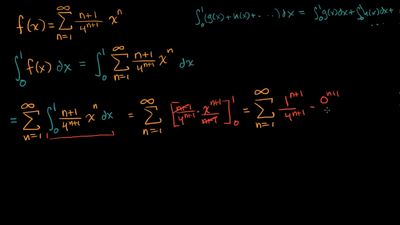 f(x) = ∑_{n=1}^{∞} (n+1)/4^{n+1} x^n    ∫_0^1 (g(x) + h(x) + ...) dx = ∫_0^1 g(x)dx + ∫_0^1 h(x)dx + ...
∫_0^1 f(x) dx = ∫_0^1 ∑_{n=1}^{∞} (n+1)/4^{n+1} x^n dx
= ∑_{n=1}^{∞} ∫_0^1 (n+1)/4^{n+1} x^n dx = ∑_{n=1}^{∞} [(n+1)/4^{n+1} · x^{n+1}/(n+1)]_0^1 = ∑_{n=1}^{∞} 1^{n+1}/4^{n+1} - 0^{n+1}